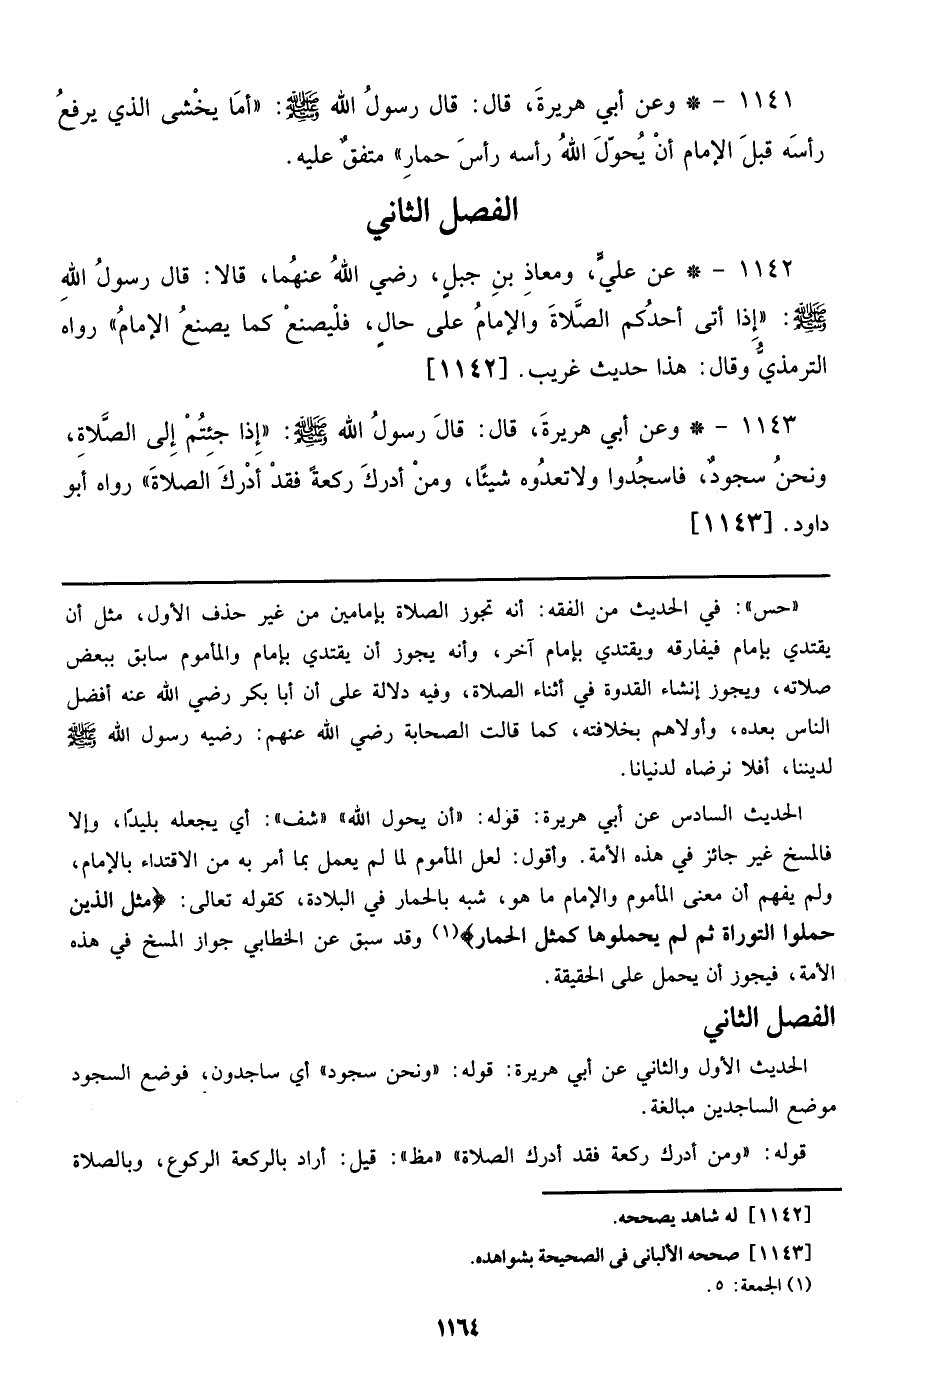 ١١٤١ – * وعن أبي هريرةَ، قال: قال رسولُ الله ﷺ: «أمَا يخْشى الذي يرفعُ
رأسَه قبلَ الإمام أنْ يُحوّلَ اللهُ رأسه رأسَ حمارٍ» متفقٌ عليه.
الفصل الثاني
١١٤٢ – * عن عليٍّ، ومعاذِ بنِ جبلٍ، رضي اللهُ عنهُما، قالا: قال رسولُ اللهِ
ﷺ: «إِذا أتى أحدُكم الصَّلاةَ والإمامُ على حالٍ، فلْيصنعْ كما يصنعُ الإمامُ» رواه
الترمذيُّ وقال: هذا حديث غريب. [١١٤٢]
١١٤٣ – * وعن أبي هريرةَ، قال: قالَ رسولُ الله ﷺ: «إِذا جئتُمْ إِلى الصَّلاةِ،
ونحنُ سجودٌ، فاسجُدوا ولاتعدُوه شيئًا، ومنْ أدركَ ركعةً فقدْ أدْركَ الصلاةَ» رواه أبو
داود. [١١٤٣]
«حس»: في الحديث من الفقه: أنه تجوز الصلاة بإمامين من غير حذف الأول، مثل أن
يقتدي بإمام فيفارقه ويقتدي بإمام آخر، وأنه يجوز أن يقتدي بإمام والمأموم سابق ببعض
صلاته، ويجوز إنشاء القدوة في أثناء الصلاة، وفيه دلالة على أن أبا بكر رضي الله عنه أفضل
الناس بعده، وأولاهم بخلافته، كما قالت الصحابة رضي الله عنهم: رضيه رسول الله ﷺ
لديننا، أفلا نرضاه لدنيانا.
الحديث السادس عن أبي هريرة: قوله: «أن يحول الله» «شف»: أي يجعله بليدًا، وإلا
فالمسخ غير جائز في هذه الأمة. وأقول: لعل المأموم لما لم يعمل بما أمر به من الاقتداء بالإمام،
ولم يفهم أن معنى المأموم والإمام ما هو، شبه بالحمار في البلادة، كقوله تعالى: ﴿مثل الذين
حملوا التوراة ثم لم يحملوها كمثل الحمار﴾(١) وقد سبق عن الخطابي جواز المسخ في هذه
الأمة، فيجوز أن يحمل على الحقيقة.
الفصل الثاني
الحديث الأول والثاني عن أبي هريرة: قوله: «ونحن سجود» أي ساجدون، فوضع السجود
موضع الساجدين مبالغة.
قوله: «ومن أدرك ركعة فقد أدرك الصلاة» «مظ»: قيل: أراد بالركعة الركوع، وبالصلاة
[١١٤٢] له شاهد يصححه.
[١١٤٣] صححه الألبانى فى الصحيحة بشواهده.
(١) الجمعة: ٥.
١١٦٤